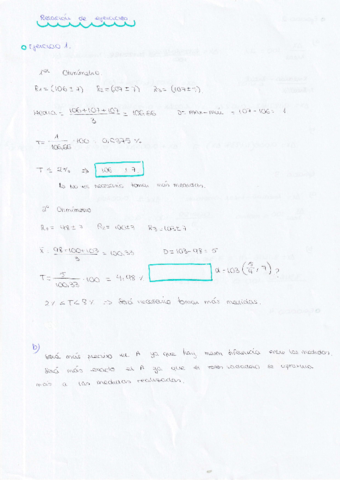 Relación de ejercicios
Ejercicio 1.
1er Ohmímetro
R₁ = (106 ± 7) R₂ = (107 ± 7) R₃ = (107 ± 7)
Media = (106+107+107)/3 = 106,66 D = max - min = 107 - 106 = 1
T = 1/106,66 · 100 = 0,9375 %
T ≤ 2% ⇒ 106 ± 7
No es necesario tomar más medidas.
2º Ohmímetro
R₁ = 98 ± 7
(98+100+103)/3 = 100,33 D = 103 - 98 = 5
T = 5/100,33 · 100 = 4,98 %
2% < T ≤ 8% ⇒ Será necesario tomar más medidas.
b)
Será más preciso el A ya que hay menos diferencia entre las medidas.
Será más exacto el A ya que el
más a las medidas realizadas.